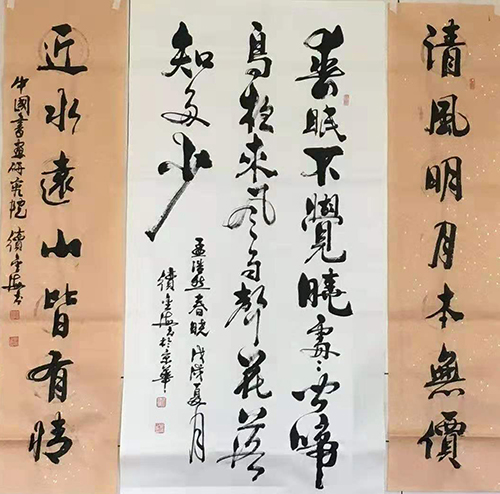 清風明月本無價
春眠不覺曉處々聞啼
鳥夜來風雨聲花落
知多少
孟浩然春曉 戊戌夏月
於京華
近水遠山皆有情
中國書畫研究院